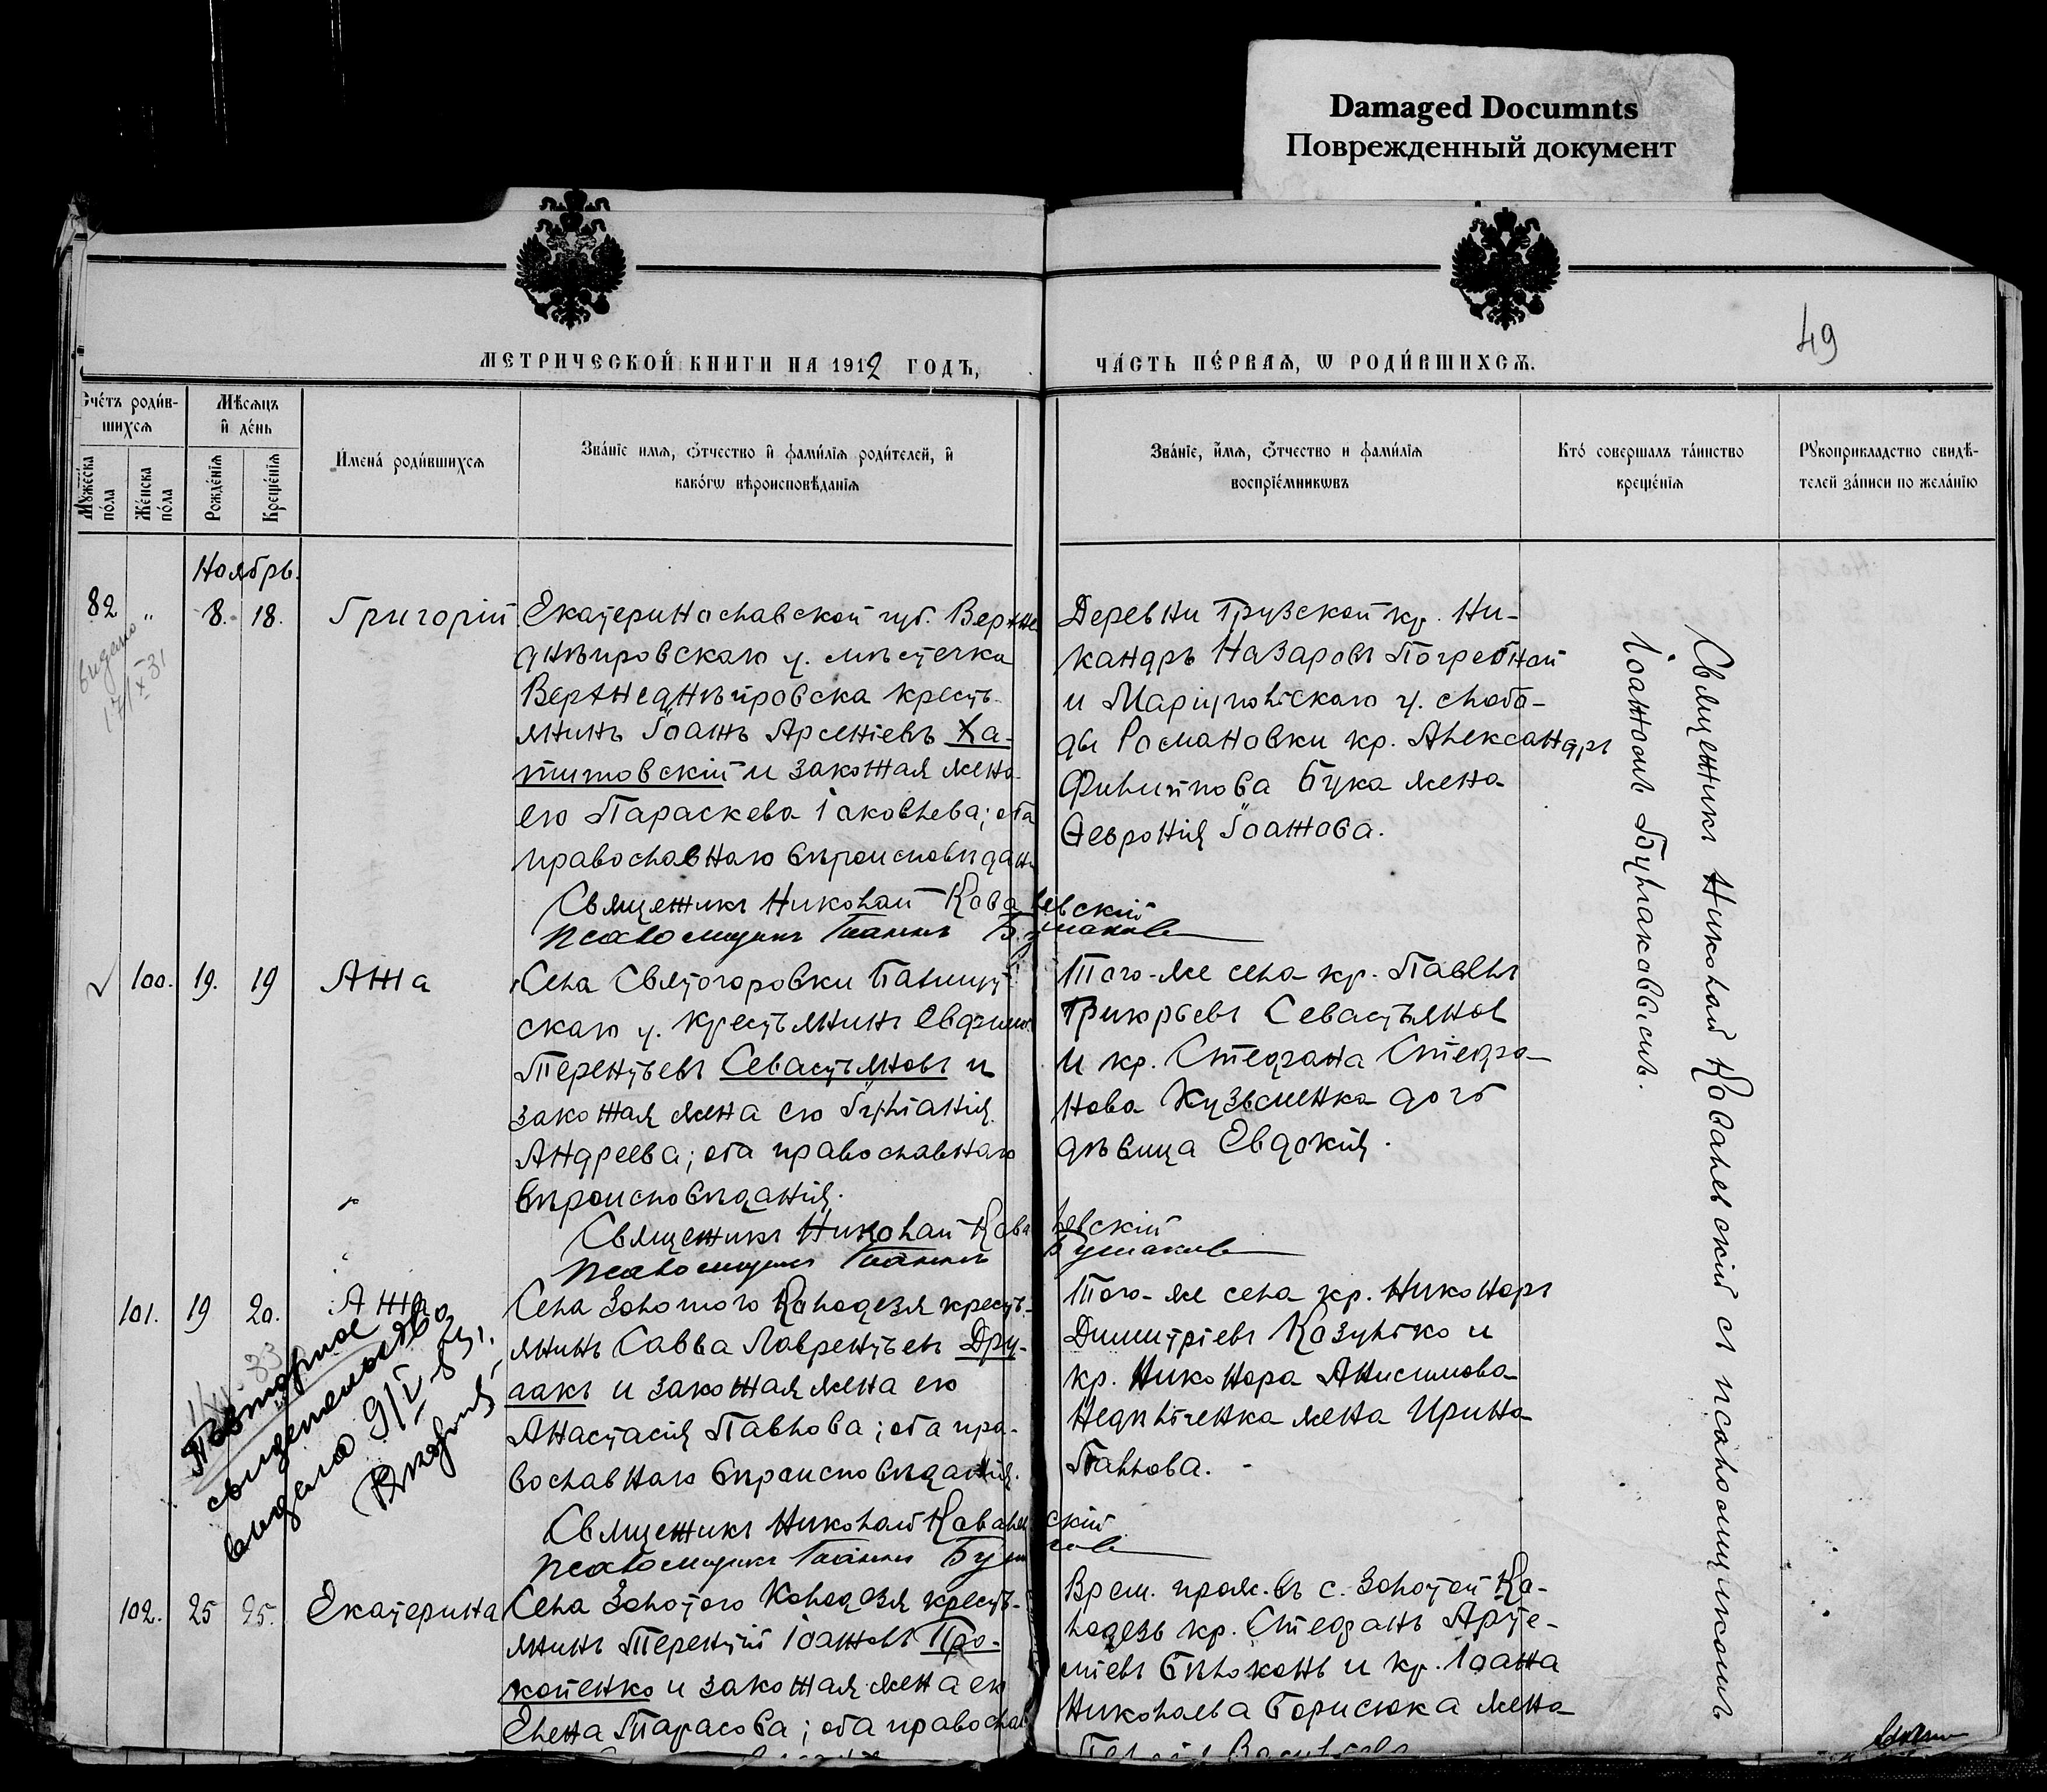 Damaged Documnts
Поврежденный документ
49
МЕТРИЧЕСКОЙ КНИГИ НА 1912 ГОДЪ,
ЧА́СТЬ ПЕ́РВАѦ, Ѡ РОДИ́ВШИХСѦ.
Счéтъ роди́в-
шихсѧ
Мꙋ́жеска
по́ла
Же́нска
по́ла
Мѣ́сѧцъ
и҆ де́нь
Рожде́нїѧ
Креще́нїѧ
И҆мена̀ роди́вшихсѧ
Зва́нїе имѧ, ѻ҆́тчество и҆ фами́лїѧ роди́телей, и҆
како́гѡ вѣроисповѣ́данїѧ
Зва́нїе, и҆́мѧ, ѻ҆́тчество и фами́лїѧ
воспрїе́мникѡвъ
Кто́ совершалъ та́инство
креще́нїѧ
Рꙋкоприкладство свидѣ́-
телей за́писи по жела́нїю
Ноябрь.
82 „ 8. 18. Григорій
видено
17/X 31
Екатеринославской губ. Верхне
днѣпровскаго у. мѣстечка
Верхнеднѣпровска кресть-
янинъ Іоаннъ Арсеніевъ Ха-
титовскій и законная жена
его Параскева Іаковлева; оба
православнаго вѣроисповѣдан
Священникъ Николай Ковалевскій
Псаломщикъ Іоаннъ
Деревни Грузской кр. Ни-
кандръ Назаровъ Погребной
и Маріупольскаго у. слобо-
ды Романовки кр. Александръ
Филиппова Бука жена
Ѳевронія Іоаннова.
Священникъ Николай Ковалевскій съ псаломщикомъ
Іоанномъ
100. 19. 19 Анна
Села Святогоровки Бахмут
скаго у. крестьянинъ Евфим
Терентьевъ Севастьяновъ и
законная жена его Іуліанія
Андреева; оба православнаго
вѣроисповѣданія.
Священникъ Николай Ковалевскій
Псаломщикъ Іоаннъ
Того-же села кр. Павелъ
Григорьевъ Севастьянов
и кр. Стефана Стефа-
нова Кузьменка дочь
дѣвица Евдокія.
101. 19 20. Анна
Повторное
свидетельство
выдано 9/V-
Села Золотого Колодезя кресть-
янинъ Савва Лаврентьевъ Дру-
аакъ и законная жена его
Анастасія Павлова; оба пра-
вославнаго вѣроисповѣданія.
Священникъ Николай Ковалевскій
Псаломщикъ Іоаннъ
Того-же села кр. Никоноръ
Димитріевъ Козулько и
кр. Никонора Анисимова
Недѣльченка жена Ирина
Павлова.
102. 25 25. Екатерина
Села Золотого Колодезя кресть-
янинъ Терентій Іоанновъ Про-
копенко и законная жена его
Елена Тарасова; оба православ
Врем. прож. въ с. Золотой Ко-
лодезь кр. Стефанъ Арте-
міевъ Бѣлоконь и кр. Іоанна
Николаева Борисюка жена